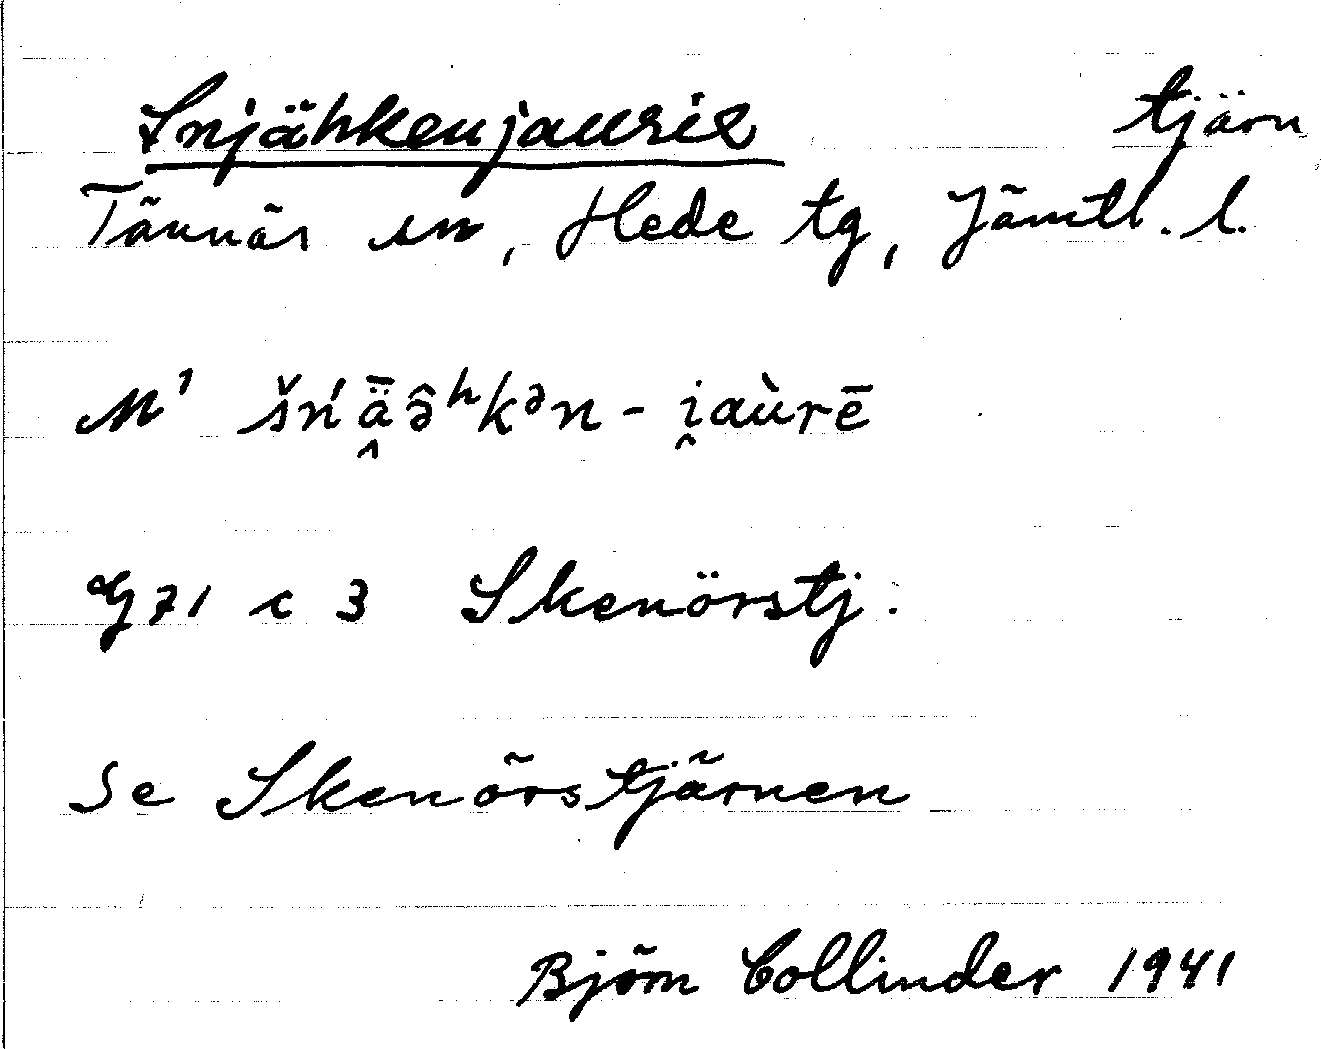 Snjähkenjaurie tjärn
Tännäs sn, Hede tg, Jämtl. l.
M¹ šń̄ä̭ə̂ʰkᵊn - i̯aùrē
G71 c 3 Skenörstj.
Se Skenörstjärnen
Björn Collinder 1941